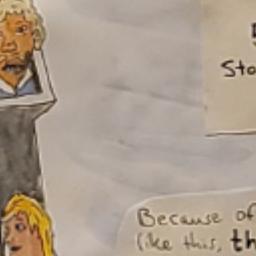 Sto
Because of
like this, th